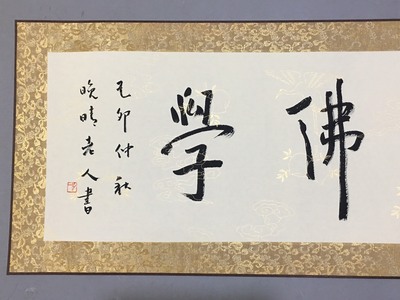 佛學
己卯仲秋
晚晴老人書